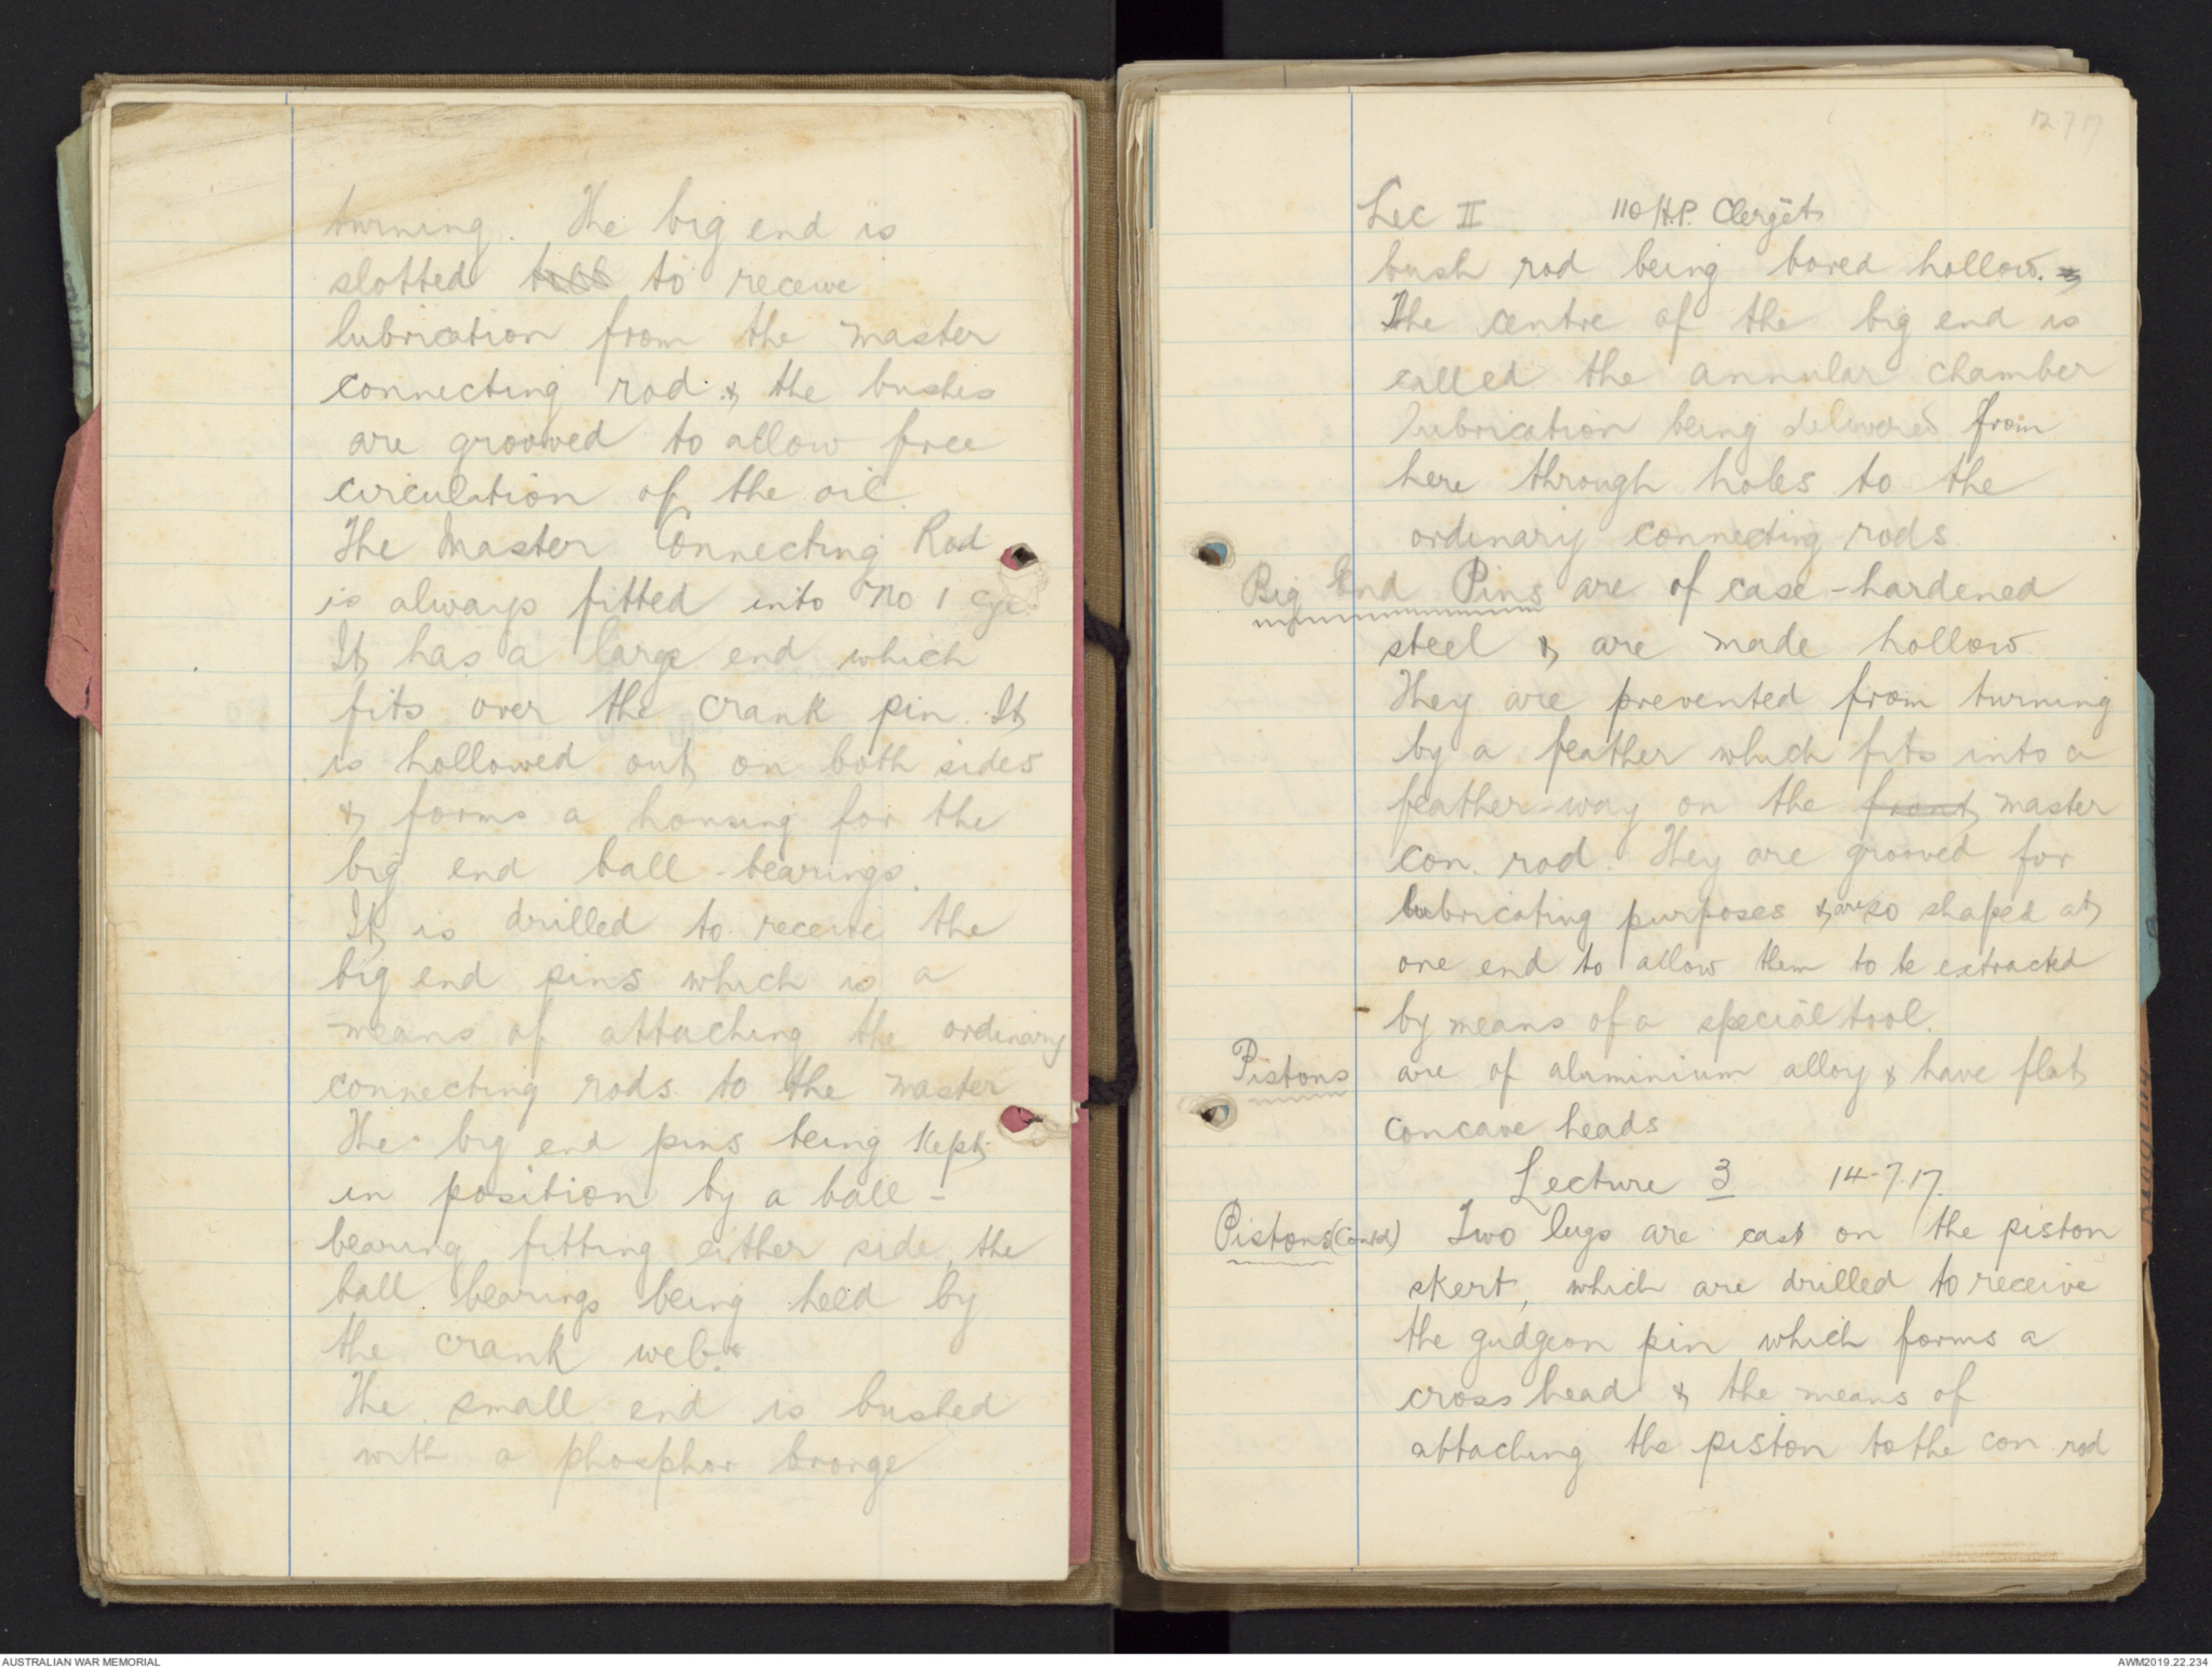 turning. The big end is
slotted to receive
lubrication from the master
connecting rod & the bushes
are grooved to allow free
circulation of the oil.
The Master Connecting Rod
is always fitted into No 1 cyl.
It has a large end which
fits over the crank pin. It
is hollowed out on both sides
& forms a housing for the
big end ball-bearings.
It is drilled to receive the
big end pins which is a
means of attaching the ordinary
connecting rods to the master
The big end pins being kept
in position by a ball-
bearing fitting either side, the
ball bearings being held by
the crank webs.
The small end is bushed
with a phosphor bronze
12.7.17
Lec II 110 H.P. Clerget
bush rod being bored hollow.
The centre of the big end is
called the annular chamber
lubrication being delivered from
here through holes to the
ordinary connecting rods.
Big End Pins are of case-hardened
steel & are made hollow.
They are prevented from turning
by a feather which fits into a
feather-way on the front master
con. rod. They are grooved for
lubricating purposes & are so shaped at
one end to allow them to be extracted
by means of a special tool.
Pistons are of aluminium alloy & have flat
concave heads
Lecture 3 14-7-17.
Pistons (Contd) Two lugs are cast on the piston
skert, which are drilled to receive
the gudgeon pin which forms a
cross head & the means of
attaching the piston to the con. rod
AUSTRALIAN WAR MEMORIAL
AWM2019.22.234